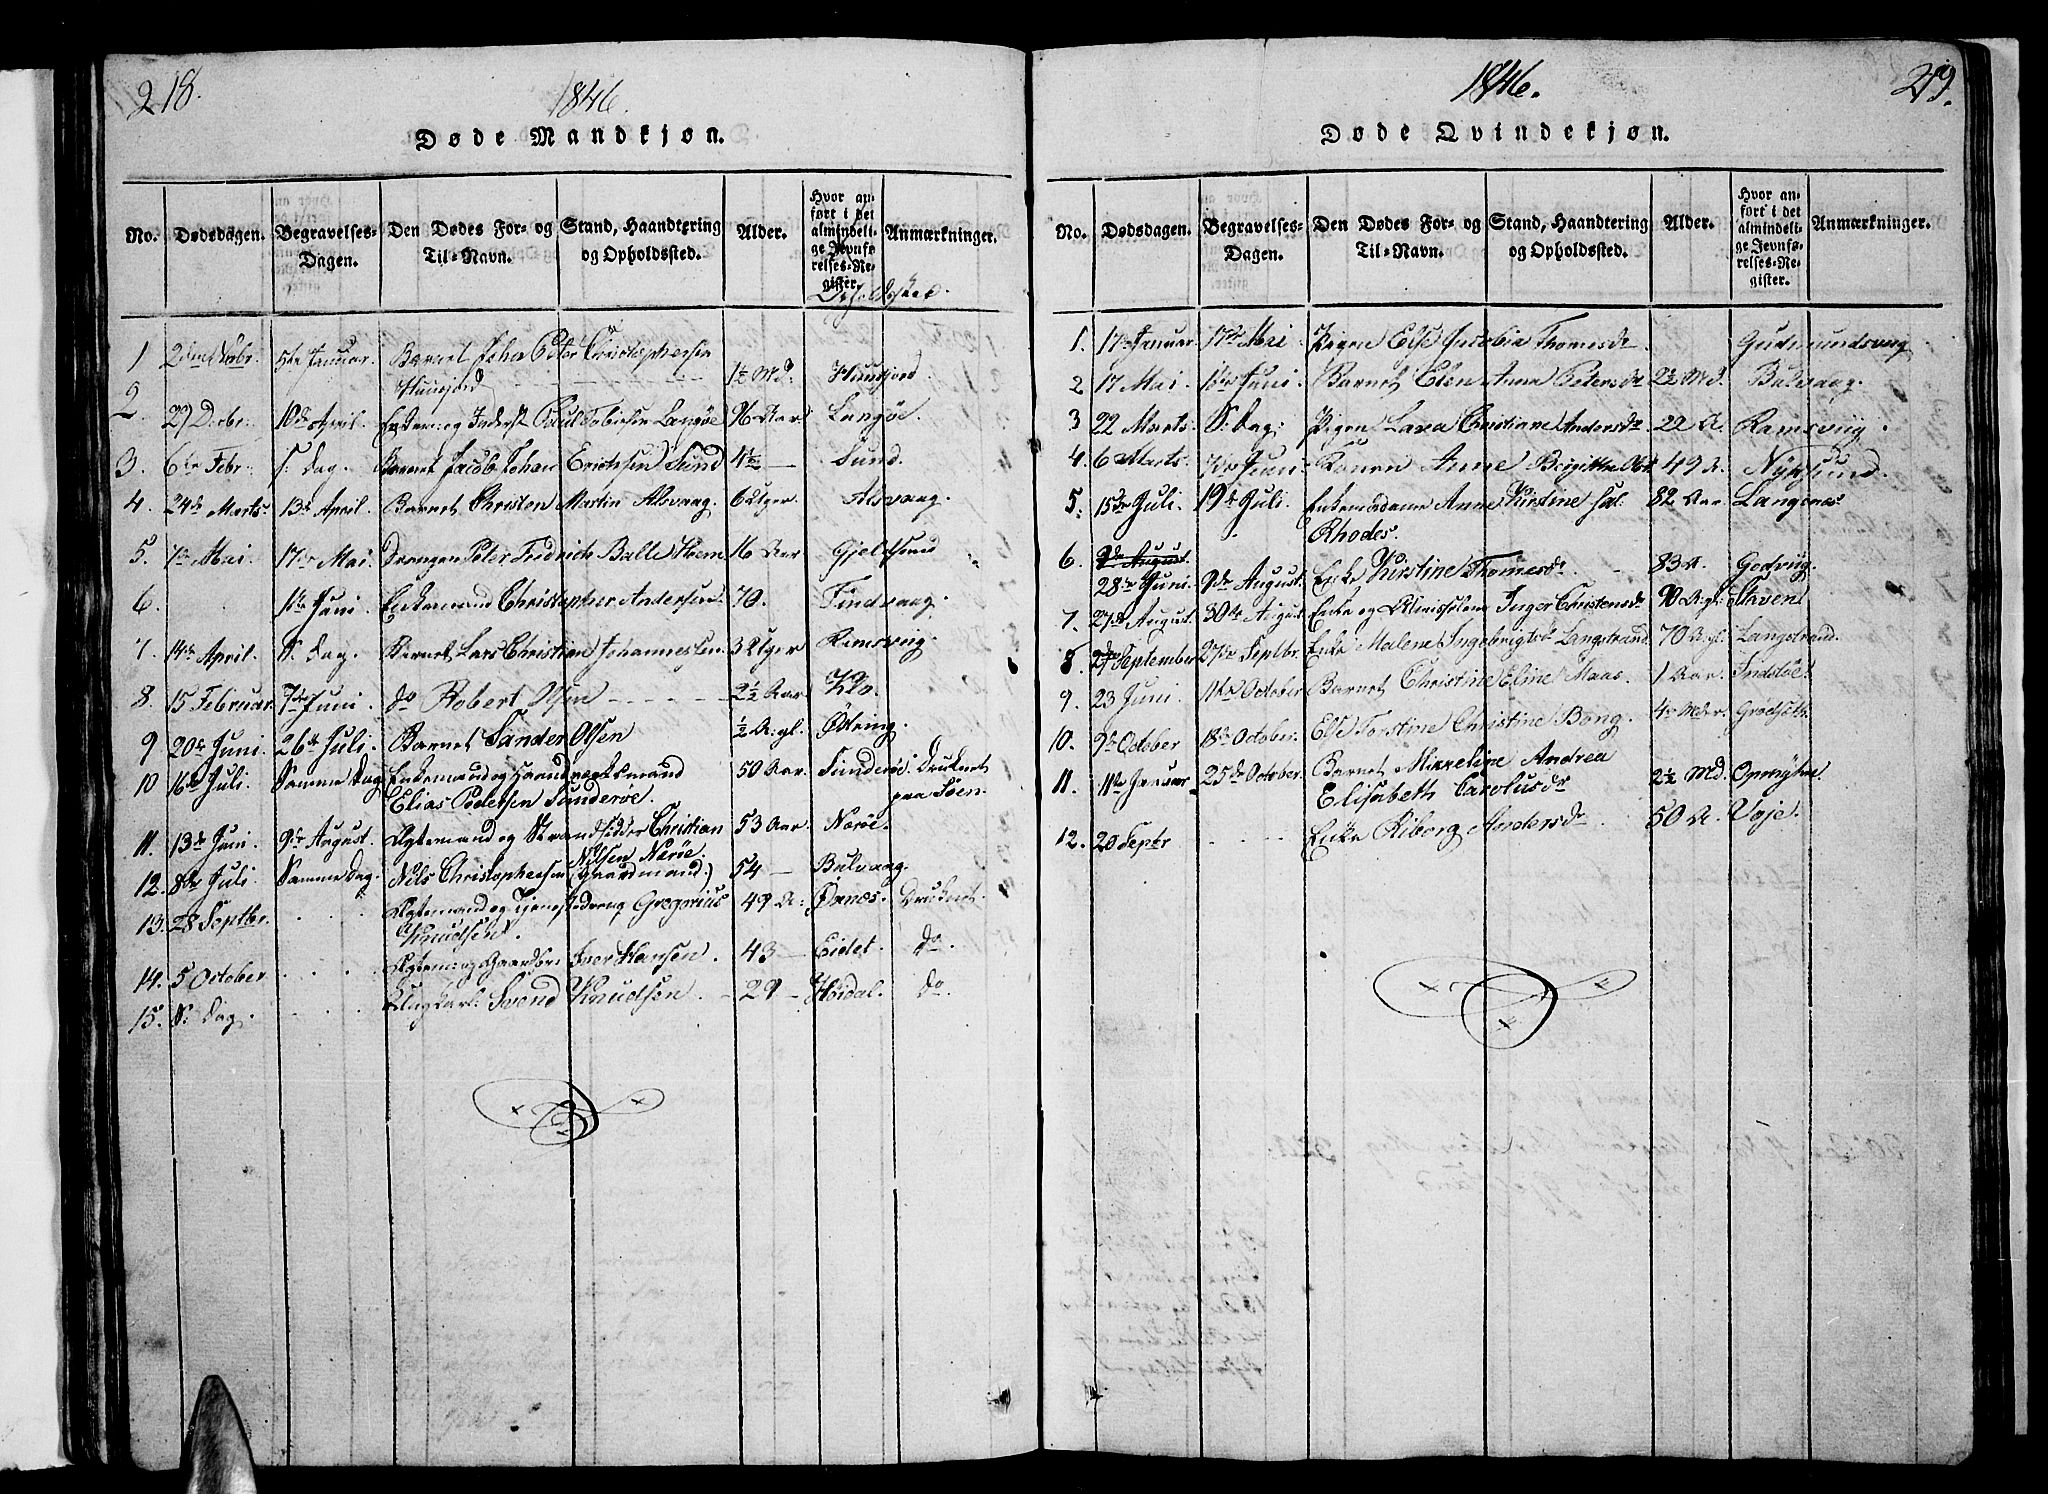 218.
1846.
Døde Mandkjøn.
No. Dødsdagen. Begravelses-Dagen. Den Dødes For- og Til-Navn. Stand, Haandtering og Opholdssted. Alder. Hvor anført i det almindelige Jevnførelses-Register. Anmærkninger.
Opholdssted.
1 5te Januar. Barnet Johan Peter Christophersen
Huusjord 1½ Md. Huusjord.
2. 29 Decbr. 10de April. Paul Tobiesen Langøe 96 Aar. Langøe.
3. 6te Febr. s: Dag. Barnet Jacob Johan Erichsen Sund 4½ — Sund.
4. 24de Marts. 13de April. Barnet Christen Martin Alsvaag. 6 Uger Alsvaag.
5. 7de Mai. 17de Mai. Drengen Peter Fredrich Balle Heem 16 Aar Gjeldsund
6. 1ste Juni. Enkemand Christopher Andersen 70. Findvaag.
7. 14de April. S. Dag. Barnet Lars Christian Johannessen. 3 Uger Ramsvig.
8. 15 Februar. 7de Juni. do Robert Olsen 2½ Aar
9 20de Juni. 26de Juli. Barnet Sander Olsen ½ A. gl.
10 16de Juli. Samme Dag Enkemand og Haandværksmand 50 Aar. Sunderøe. Druknet
Elias Pedersen Sunderøe. paa Søen.
11. 13de Juni. 9de August. Ægtemand og Strandsidder Christian 53 Aar. Narøe.
Nilsen Narøe.
12. 8de Juli. Samme Dag. Nils Christophersen (Gaardmand:) 54 — Balvaag.
13. 28 Septbr. Ægtemand og Tjenestedreng Gregorius 49 A: Ørnæs. Druknet.
Knudsen.
14. 5 October Iver Hansen. 43 — Eidet. do.
15. S: Dag. Ungkarl: Svend Knudsen. 29 — Høidal. do
1846.
219.
Døde Qvindekjøn.
No. Dødsdagen. Begravelses-Dagen. Den Dødes For- og Til-Navn. Stand, Haandtering og Opholdssted. Alder. Hvor anført i det almindelige Jevnførelses-Register. Anmærkninger.
1. 17de Januar 17de Mai Pigen Else Jacobia Thomesdr Gudmundsvig
2 17 Mai. 1ste Juni. Barnet Elen Anna Petersdr 2½ Md. Balvaag.
3 22 Marts. S: Dag: Pigen Lava Christiane Andersdr 22 A. Ramsvig.
4. 6 Marts. 7de Juni Konen Anne Birgitta 49 A. Nyksund.
5. 15de Juli. 19de Juli. Enkemadame Anne Kirstine sal: 82 Aar Langenes
Rhodes.
6. 9de August.
28de Juni. 9de August. Enke Kirstine Thomesdr 83 A. Godvig.
7. 27de August. 30te August Enke og Inger Christensdr 90 A. gl: Staven
8. September 27de Septbr. Enke Malene Ingebrigtsdr Langstrand 70 A. gl: Langstrand.
9. 23 Juni. 11te October Barnet Christine Eline Maas. 1 Aar.
10. 9de October 18de October. Else Torstine Christine Bong. 4 Mdr.
11. 11te Januar 25de October. Barnet Mikeline Andrea
Elisabeth Carolusdr 2½ Md. Opmyhre.
12. 20 Septr Enke Kiborg Andersdr 50 A. Vøje.